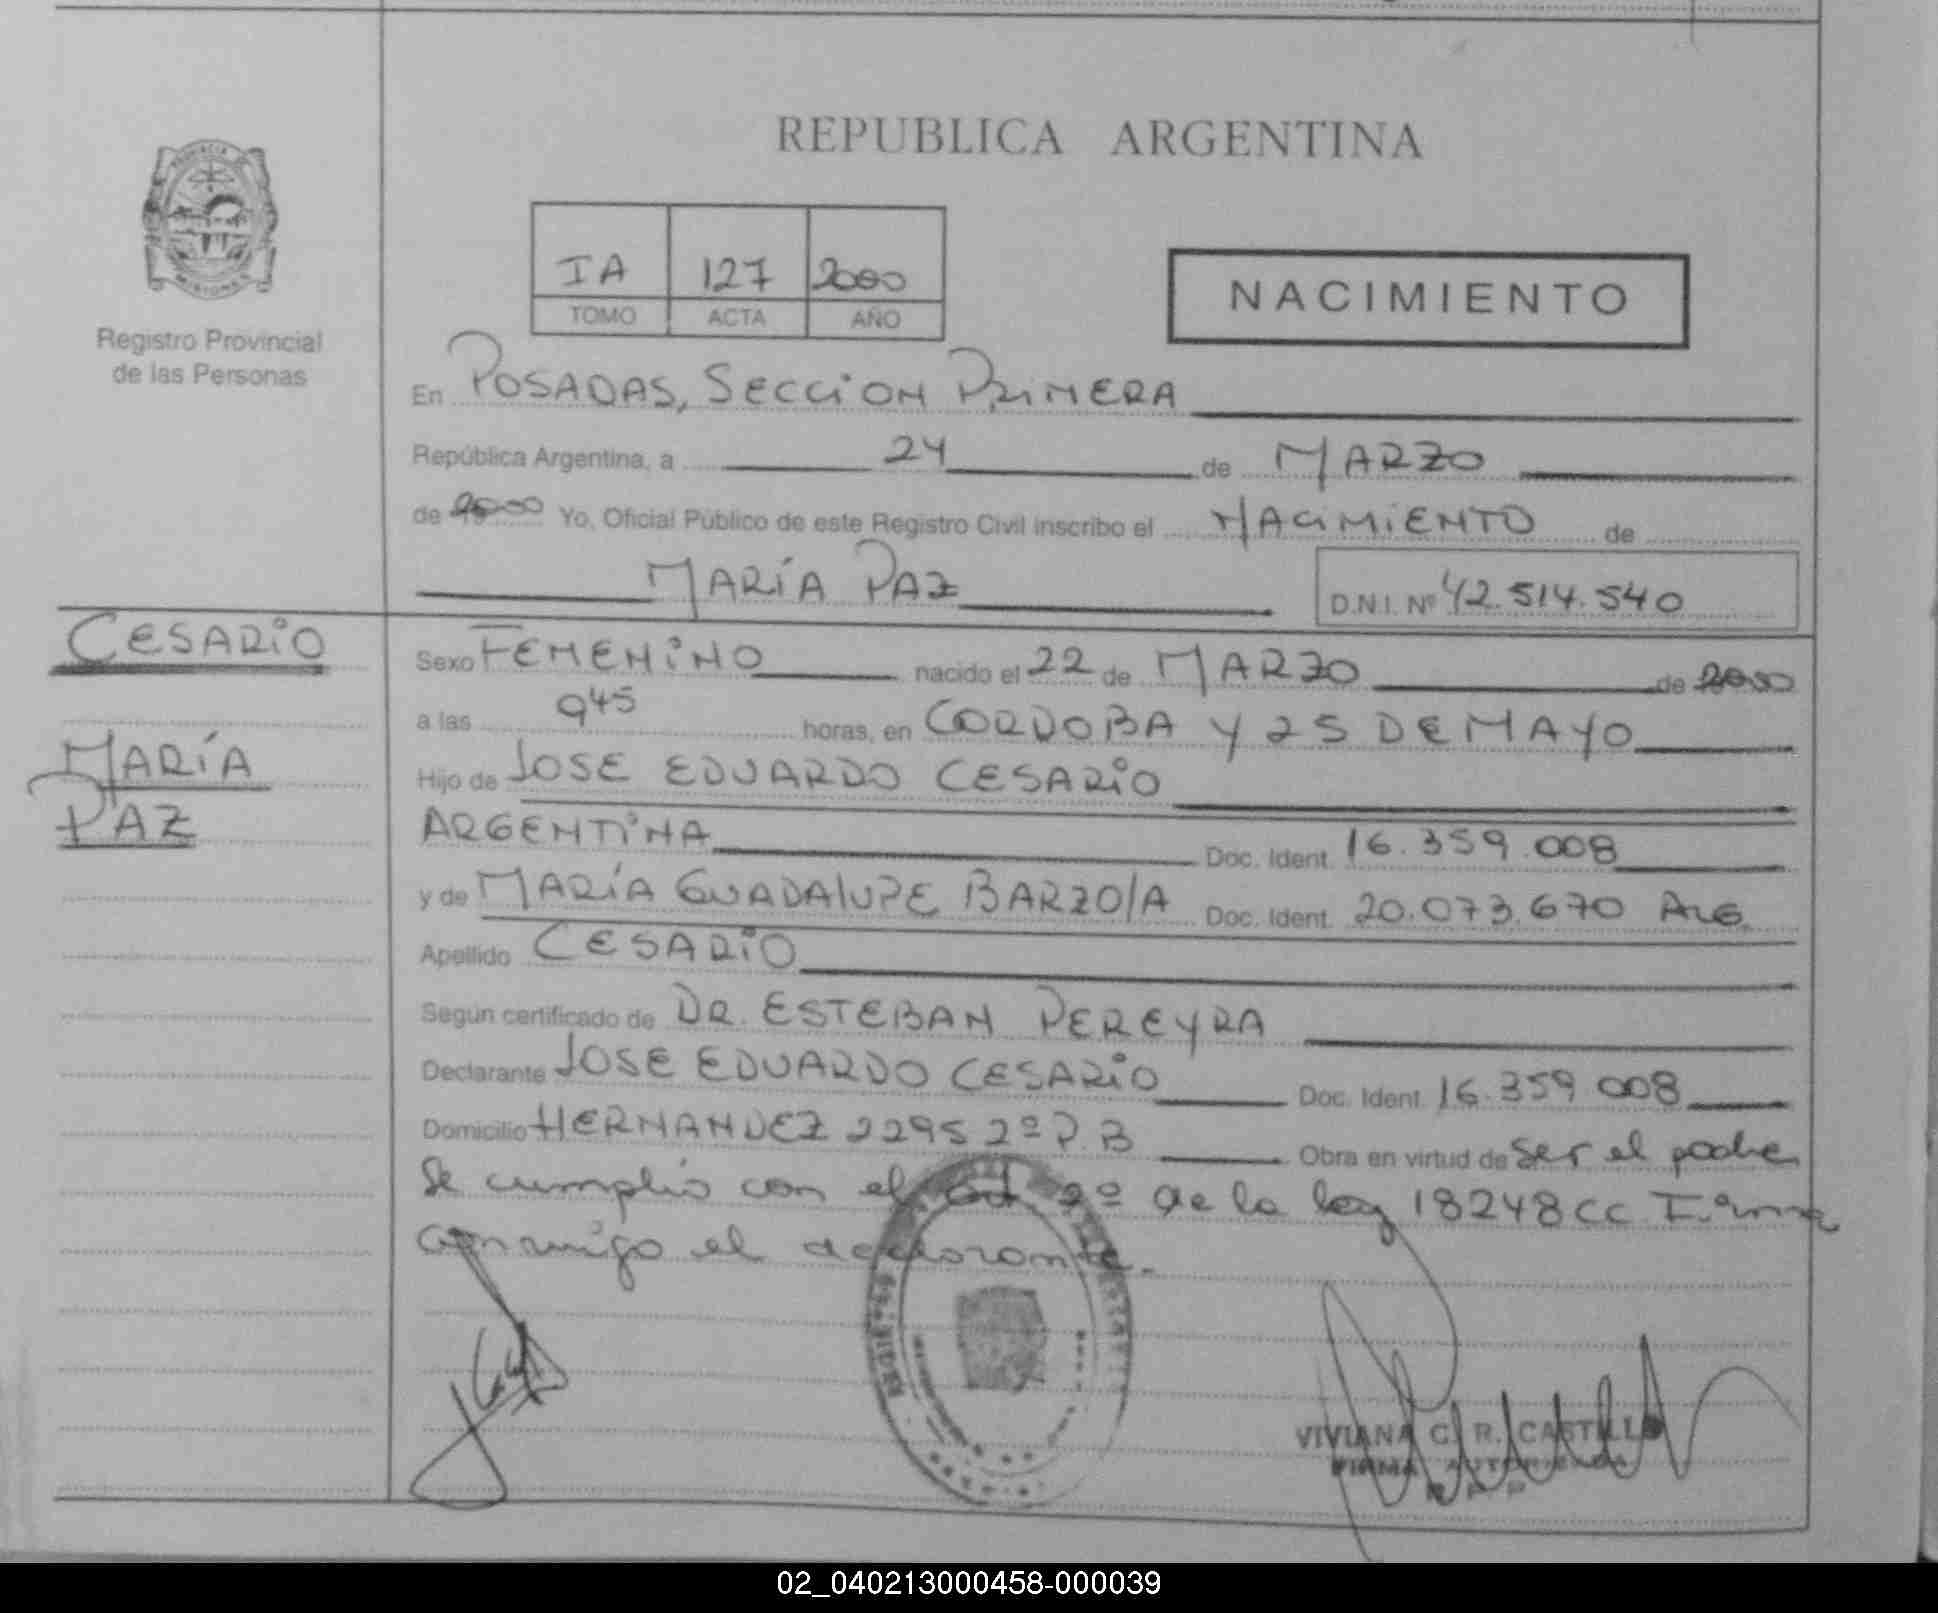 REPUBLICA ARGENTINA
PROVINCIA DE
MISIONES
Registro Provincial
de las Personas
IA 127 2000
TOMO ACTA AÑO
NACIMIENTO
En POSADAS, SECCION PRIMERA
República Argentina, a 24 de MARZO
de 2000 Yo, Oficial Público de este Registro Civil inscribo el NACIMIENTO de
MARÍA PAZ D.N.I. Nº 42.514.540
CESARIO
MARÍA
PAZ
Sexo FEMENINO nacido el 22 de MARZO de 2000
a las 9 45 horas, en CORDOBA Y 25 DE MAYO
Hijo de JOSE EDUARDO CESARIO
ARGENTINA Doc. Ident. 16.359.008
y de MARÍA GUADALUPE BARZOLA Doc. Ident. 20.073.670 ARG.
Apellido CESARIO
Según certificado de DR. ESTEBAN PEREYRA
Declarante JOSE EDUARDO CESARIO Doc. Ident. 16.359.008
Domicilio HERNANDEZ 2295 2º P.B Obra en virtud de ser el padre
Se cumplió con el art 2º de la ley 18248 CC Firma
conmigo el declarante.
VIVIANA C. R. CASTILLO
FIRMA AUTORIZADA
02_040213000458-000039